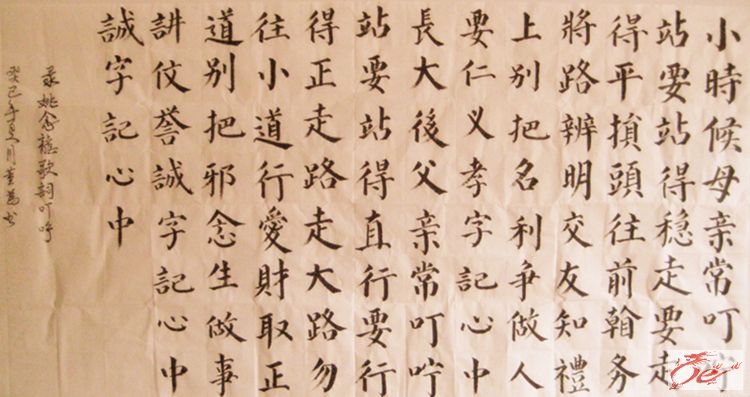 小時候母亲常叮
站要站得穏走要走
得平頭往前务
將路辨明交友知禮
上别把名利争做人
要仁义孝字記心中
長大後父亲常叮咛
站要站得直行要行
得正走路走大路勿
往小道行愛財取正
道别把邪念生做事
誉誠字記心中
誠字記心中
录姚念歌詞叮咛
癸巳年夏月董书